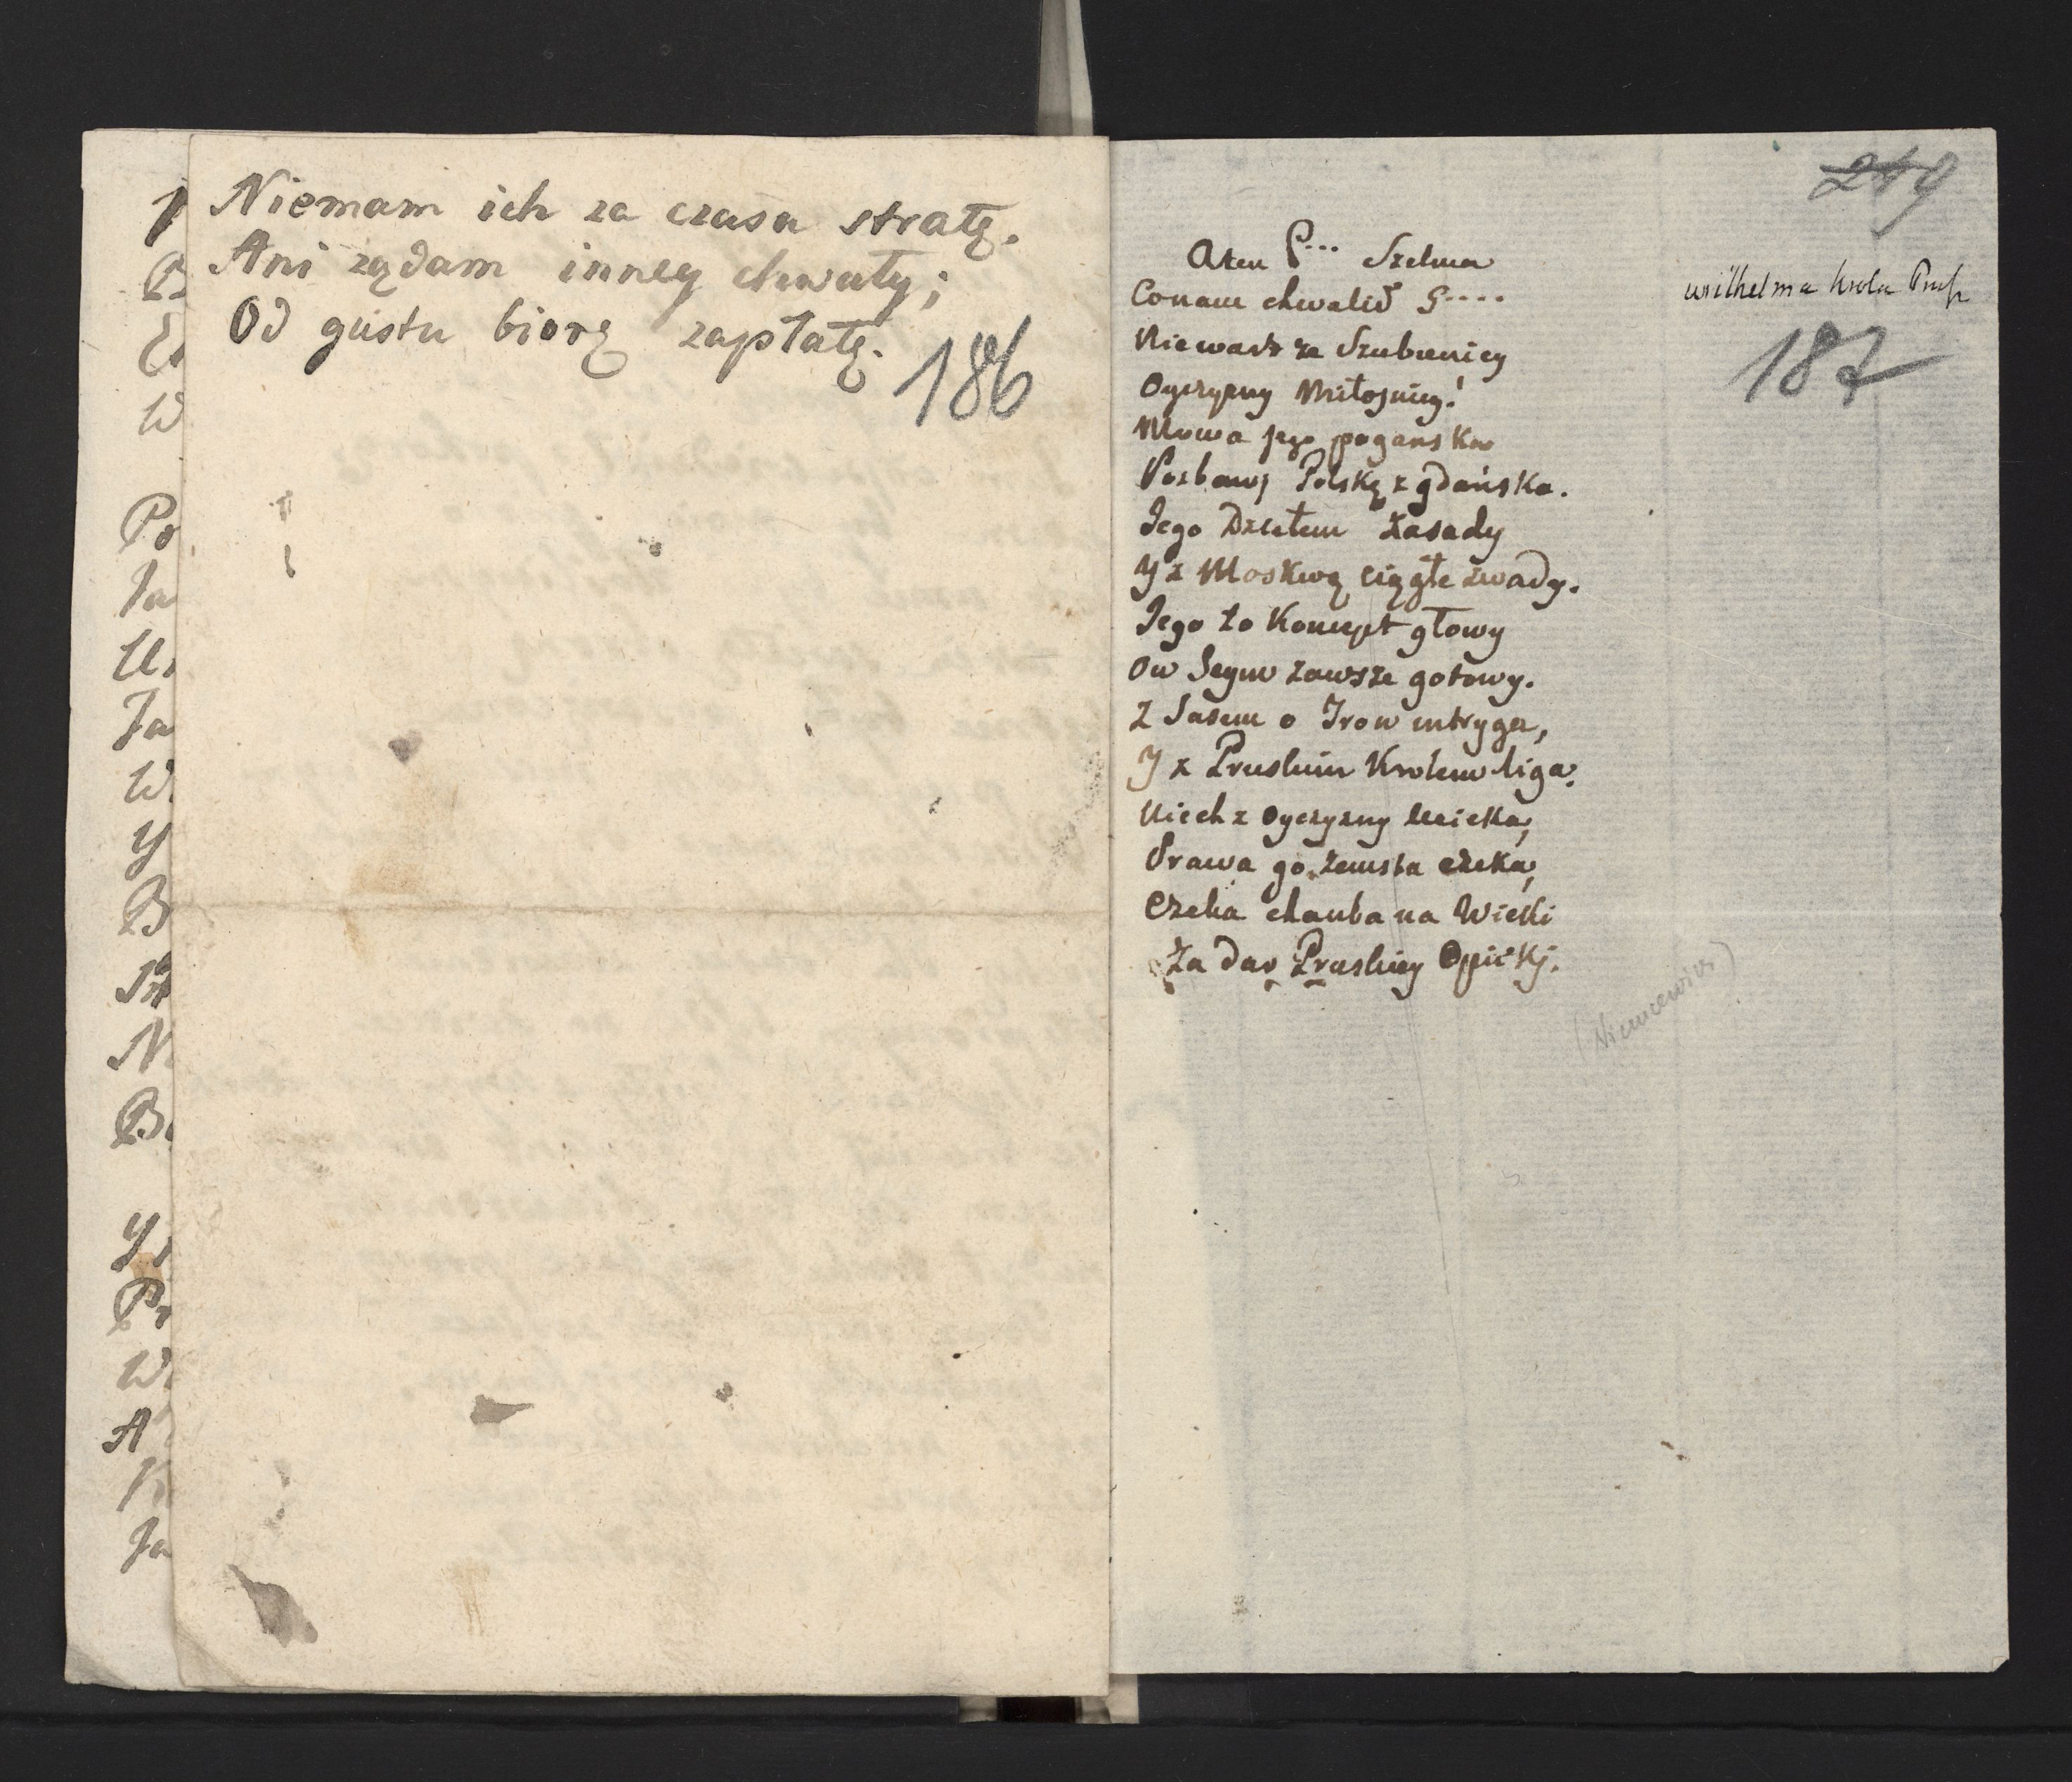 Niemam ich za czasu stratę.
Ani rządam inney chwały;
Od gustu biorę zapłatę.
186
Po
Ja
Ja
W
Y
B
N
B
Pr
W
A
Ja
249
Aten P... Szelma
Conam chwalił G....
Niewart ze Szubienicy
Oyczyzny Miłosnicy!
Mowa jego poganska
Pozbawj Polskę z gdańska.
Jego Dziełem Zasady
Y z Moskwą ciągłe zwady.
Jego to Koncept głowy
Ow Seym zawsze gotowy.
Z Sasem o Tron intryga,
Y z Pruskim Krolem liga.
Niech z Oyczyzny ucieka,
Prawa go zemsta czeka,
Czeka chanba na Wieki
Za dar Pruskiey Opieki.
wilhelma krola Prus
187
(Niemcewicz)